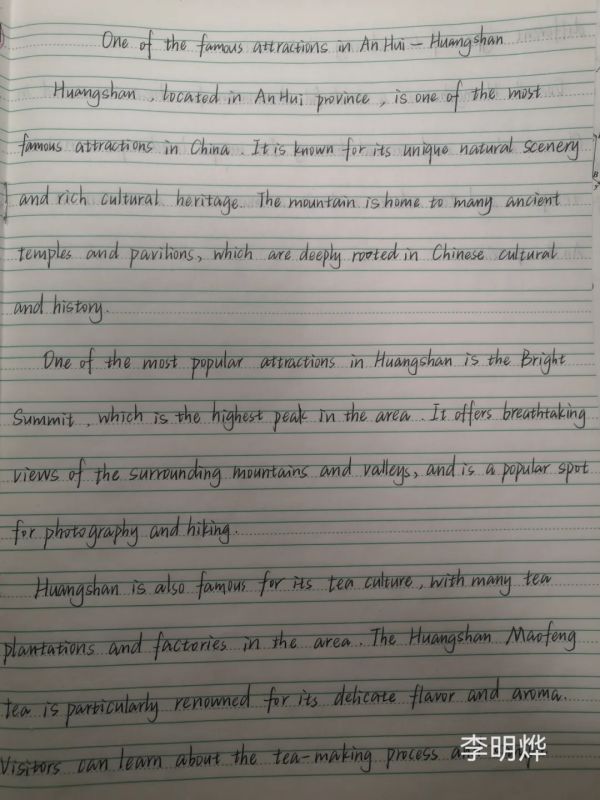 One of the famous attractions in An Hui - Huangshan
Huangshan, located in An Hui province, is one of the most
famous attractions in China. It is known for its unique natural scenery
and rich cultural heritage. The mountain is home to many ancient
temples and pavilions, which are deeply rooted in Chinese cultural
and history.
One of the most popular attractions in Huangshan is the Bright
Summit, which is the highest peak in the area. It offers breathtaking
views of the surrounding mountains and valleys, and is a popular spot
for photography and hiking.
Huangshan is also famous for its tea culture, with many tea
plantations and factories in the area. The Huangshan Maofeng
tea is particularly renowned for its delicate flavor and aroma.
Visitors can learn about the tea-making process
李明烨